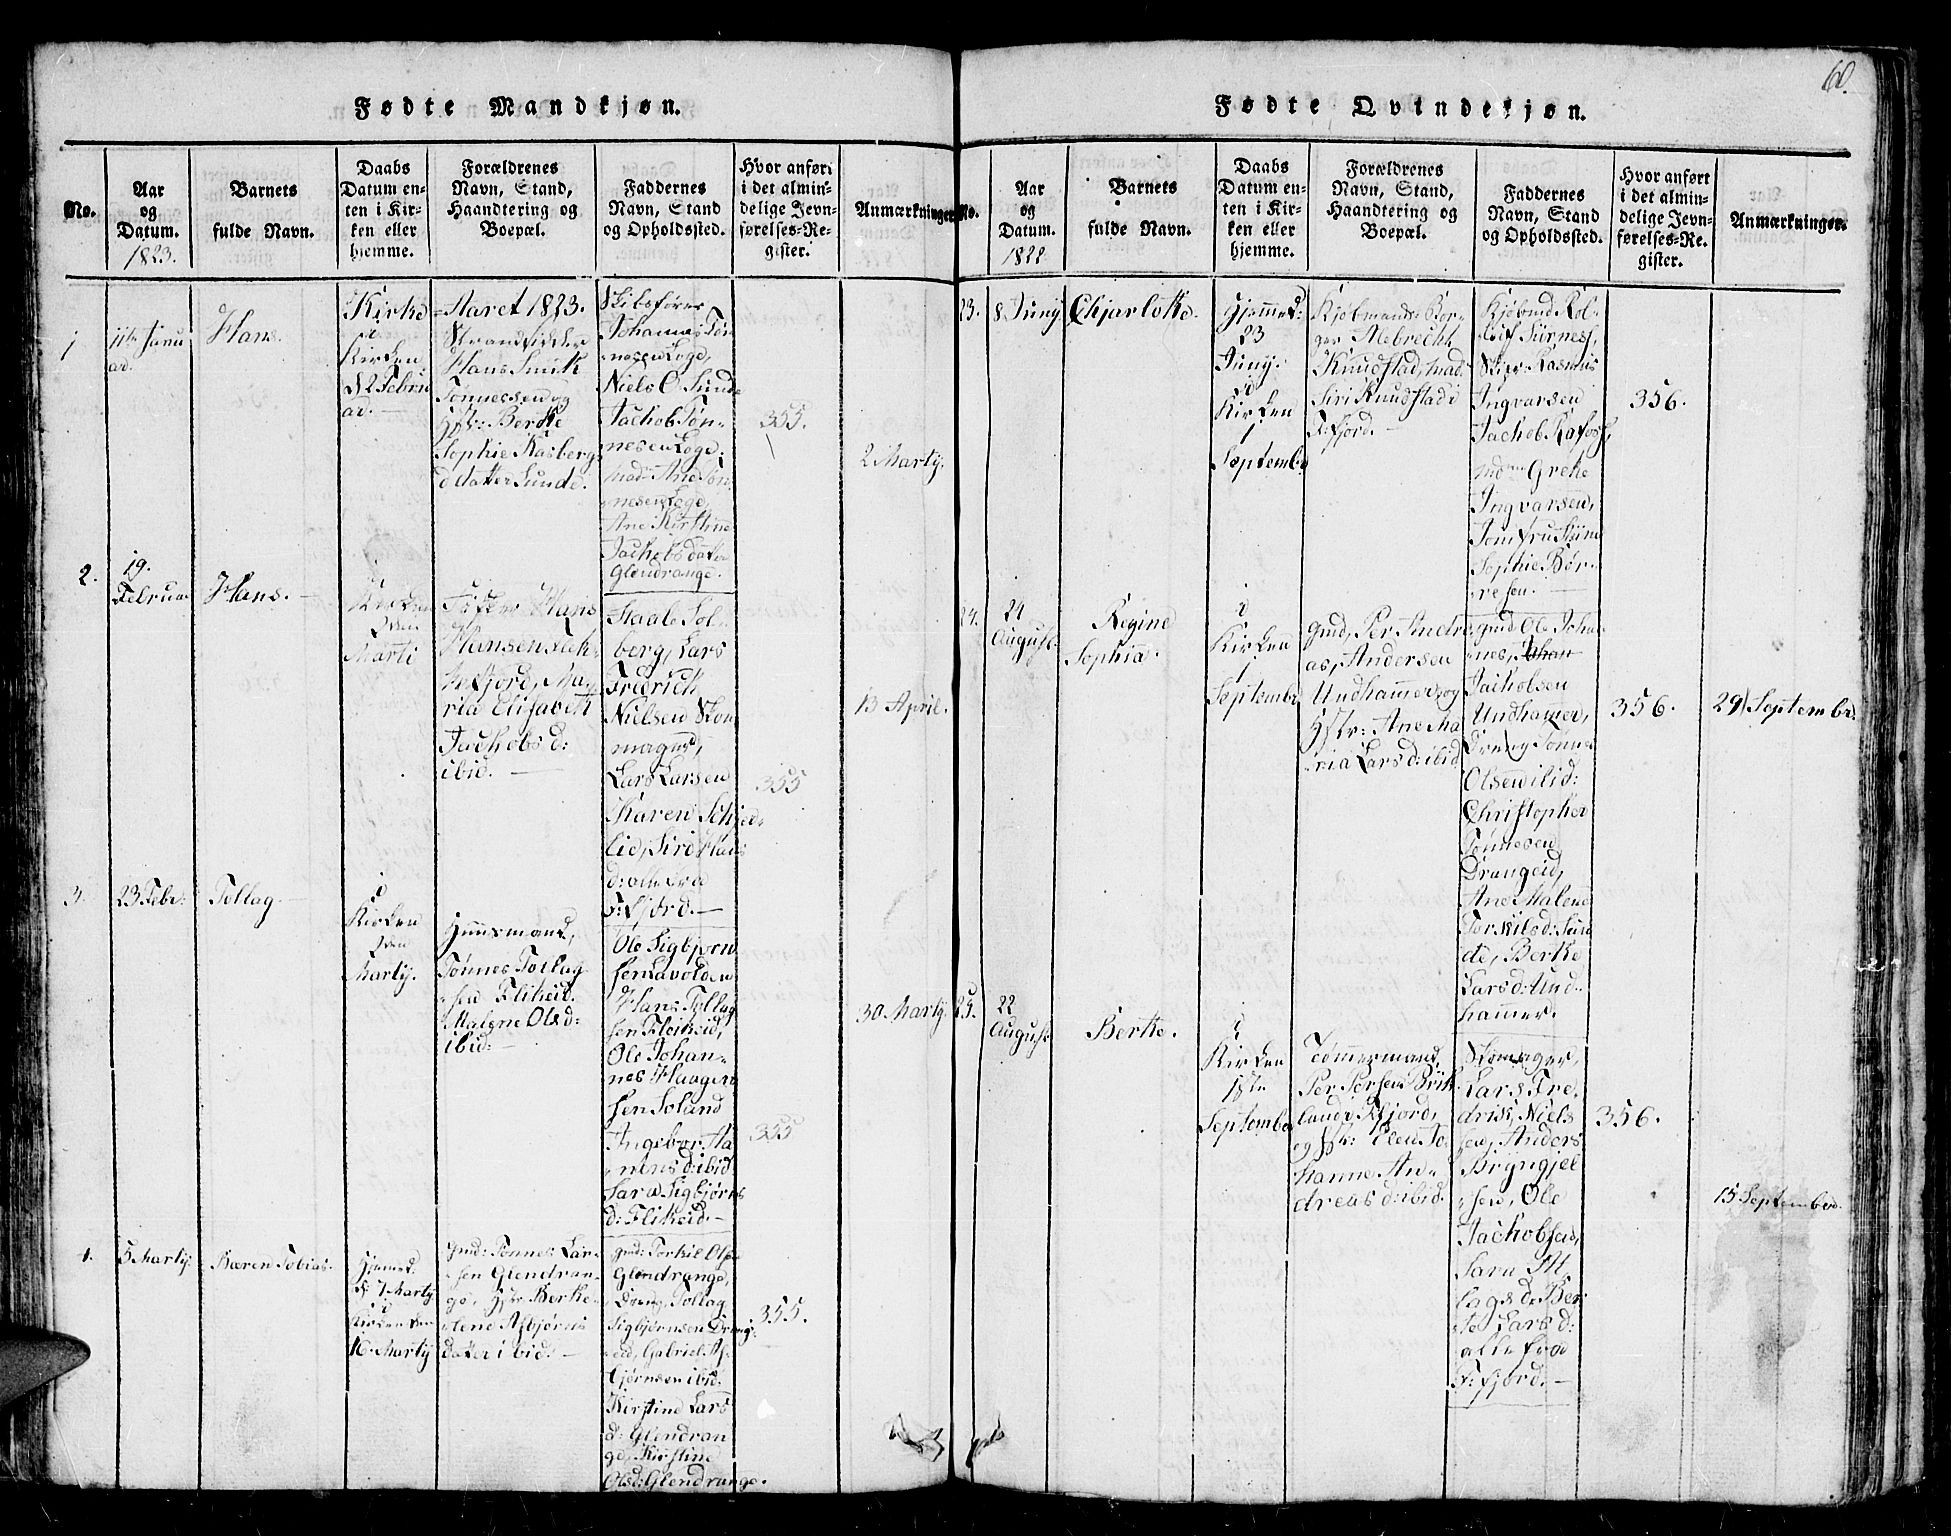 60.
Fødte Mandkjøn.
No.
Aar
og
Datum.
1823.
Barnets
fulde Navn.
Daabs
Datum en-
ten i Kir-
ken eller
hjemme.
Forældrenes
Navn, Stand,
Haandtering og
Boepæl.
Faddernes
Navn, Stand
og Opholdssted.
Hvor anført
i det almin-
delige Jevn-
førelses-Re-
gister.
Anmærkninger
1
11te Janu
ar.
Hans.
Kirke
i
Kirken
d. 2 Febru
ar.
Aaret 1823.
Strandsidder
Hans Smith
Tønnessen og
Hstr: Berthe
Sophie Kasberg
datter Sunde.
Skibsfører
Johannes Tøn
nesen Loge,
Niels O Sunde
Jachob Tøn-
nesen Loge.
Mad. Ane Tøn
nesen Loge,
Ane Kirstine
Jachobsdatter
Glendrange.
355.
2 Marty.
2.
19.
Februar
Hans.
Kirken
2den
Marti
Hans
Hansen
Flekkefjord, Ma-
ria Elisabeth
Jachobs d:
ibid.
Staale Sol-
berg, Lars
Fredrich
Nielsen Skoe
mager,
Lars Larsen
Karen
lid, Siri Hans
d: alle fra
F:fjord.
355
13 April.
3.
23 Febr:
Tollag
i
Kirken
2den
Marty.
Huusmand,
Tønnes Tollag
sen Flikeid.
Malene Ols d:
ibid:
Ole Sigbjørn
sen Lavolden
Hans Tollag
sen Flikeid,
Ole Johan-
nes Haagen
sen Soland
Ingebor Aa
nens d: ibid
Sara Sigbjørns
d: Flikeid.
355
30 Marty.
4.
5 Marty
Søren Tobias.
Hjemmed:
d: 7 Marty
i
Kirken den
16. Marty
gmd: Tønnes Lar-
sen Glendran-
ge, Hstr Berthe-
lene Asbjørns
datter ibid:
gmd: Torkil Olsen
Glendrange,
Dreng Tollag
Sigbjørnsen Drang-
eid, Gabriel As-
bjørnsen ibid.
Kirstine Lars
d: Glendran
ge, Kirstine
Olsd: Glendrange.
355.
Fødte Qvindekjøn.
No.
Aar
og
Datum.
1822
Barnets
fulde Navn.
Daabs
Datum en-
ten i Kir-
ken eller
hjemme.
Forældrenes
Navn, Stand,
Haandtering og
Boepæl.
Faddernes
Navn, Stand
og Opholdssted.
Hvor anført
i det almin-
delige Jevn-
førelses-Re-
gister.
Anmærkninger.
23.
8 Juny
Chjarlotte.
Hjemmed:
23
Juny.
i
Kirken
1
September
Kjøbmand Bor-
ger Alebrecht
Knudstad, Mad
Siri Knudstad i
F:fjord.
Kjøbmd Rol-
leif Sürness,
Skipr Rasmus
Ingvarsen
Jachob Rafoss,
Mdme Grethe
Ingvarsen,
Jomfru Stine
Sophie Bør-
resen.
356.
24.
24
August.
Regine
Sophia.
i
Kirken
1
September
gmd, Per Andre
as, Andersen
Undhammer og
Hstr: Ane Ma
ria Lars d: ibid
gmd, Ole Joha
nes, Johan
Jachobsen
Undhamer,
Dreng Tønnes
Olsen ibid:
Christopher
Tønnesen
Drangeid,
Ane Malene
Torkils d: Sun
de, Berthe
Lars d: Und-
hammer.
356.
29 September.
25.
22
August.
Berthe.
i
Kirken
1ste
September
Tømmermand
Per Persen Birk
land i F:fjord,
og Hstr: Elen Jo
hanne An-
dreas d: ibid.
Skomager,
Lars Fre-
drik, Niels
sen, Anders
Bryngjel
sen, Ole
Jachobsen,
Sara
lags d: Ber
te Lars d:
alle fra
F:fjord.
356.
15 September.